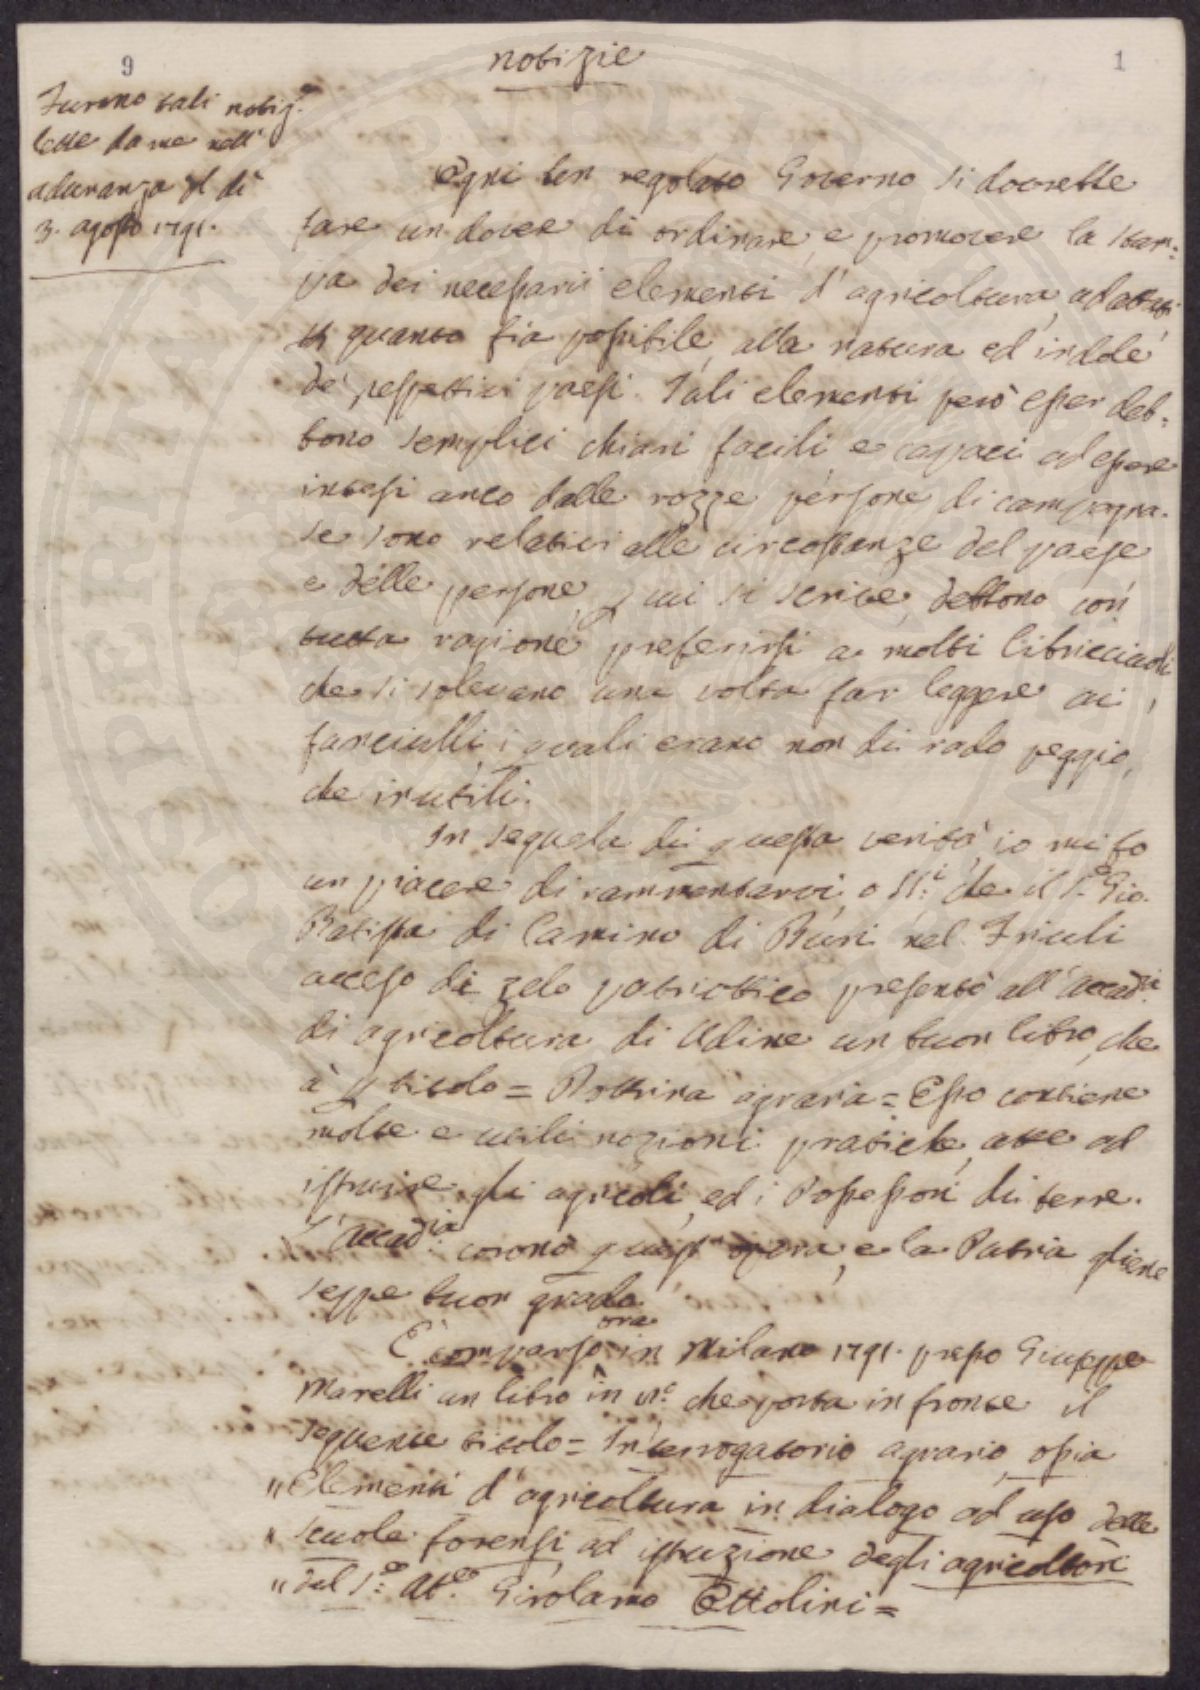 9
1
notizie
Furono tali notiz.e
lette da me nell'
adunanza il dì
3. agosto 1791.
Ogni ben regolato Governo si dovrebbe
fare un dovere di ordinare, e promovere la stam=
pa dei necessarii elementi d'agricoltura, adattati,
in quanto sia possibile, alla natura ed indole
de' respettivi paesi. Tali elementi però esser deb=
bono semplici chiari facili e capaci ad essere
intesi anco dalle rozze persone di campagna.
Se sono relativi alle circostanze del paese
e delle persone, p cui si scrive, debbono con
tutta ragione preferirsi a molti libricciuoli
che si solevano una volta far leggere ai
fanciulli, i quali erano non di rado peggio,
che inutili.
In sequela di questa verità io mi fo
un piacere di rammentarvi o SS.i che il S.e Gio.
Batista di Camino di Buri nel Friuli
acceso di zelo patriottico presentò all'Accad.ia
di agricoltura di Udine un buon libro, che
à p titolo = Dottrina agraria = Esso contiene
molte e utili nozioni pratiche, atte ad
istruire gli agricoli, ed i Possessori di terre.
L'Accad.ia coronò quest' opera, e la Patria gliene
seppe buon grado.
E' comparso ora in Milano 1791. presso Giuseppe
Marelli un libro in 12.o che porta in fronte il
seguente titolo = Interrogatorio agrario, ossia
" Elementi d'agricoltura in dialogo ad uso delle
" scuole forensi ad istruzione degli agricoltori
" del S.e Ab.e Girolamo Ottolini =